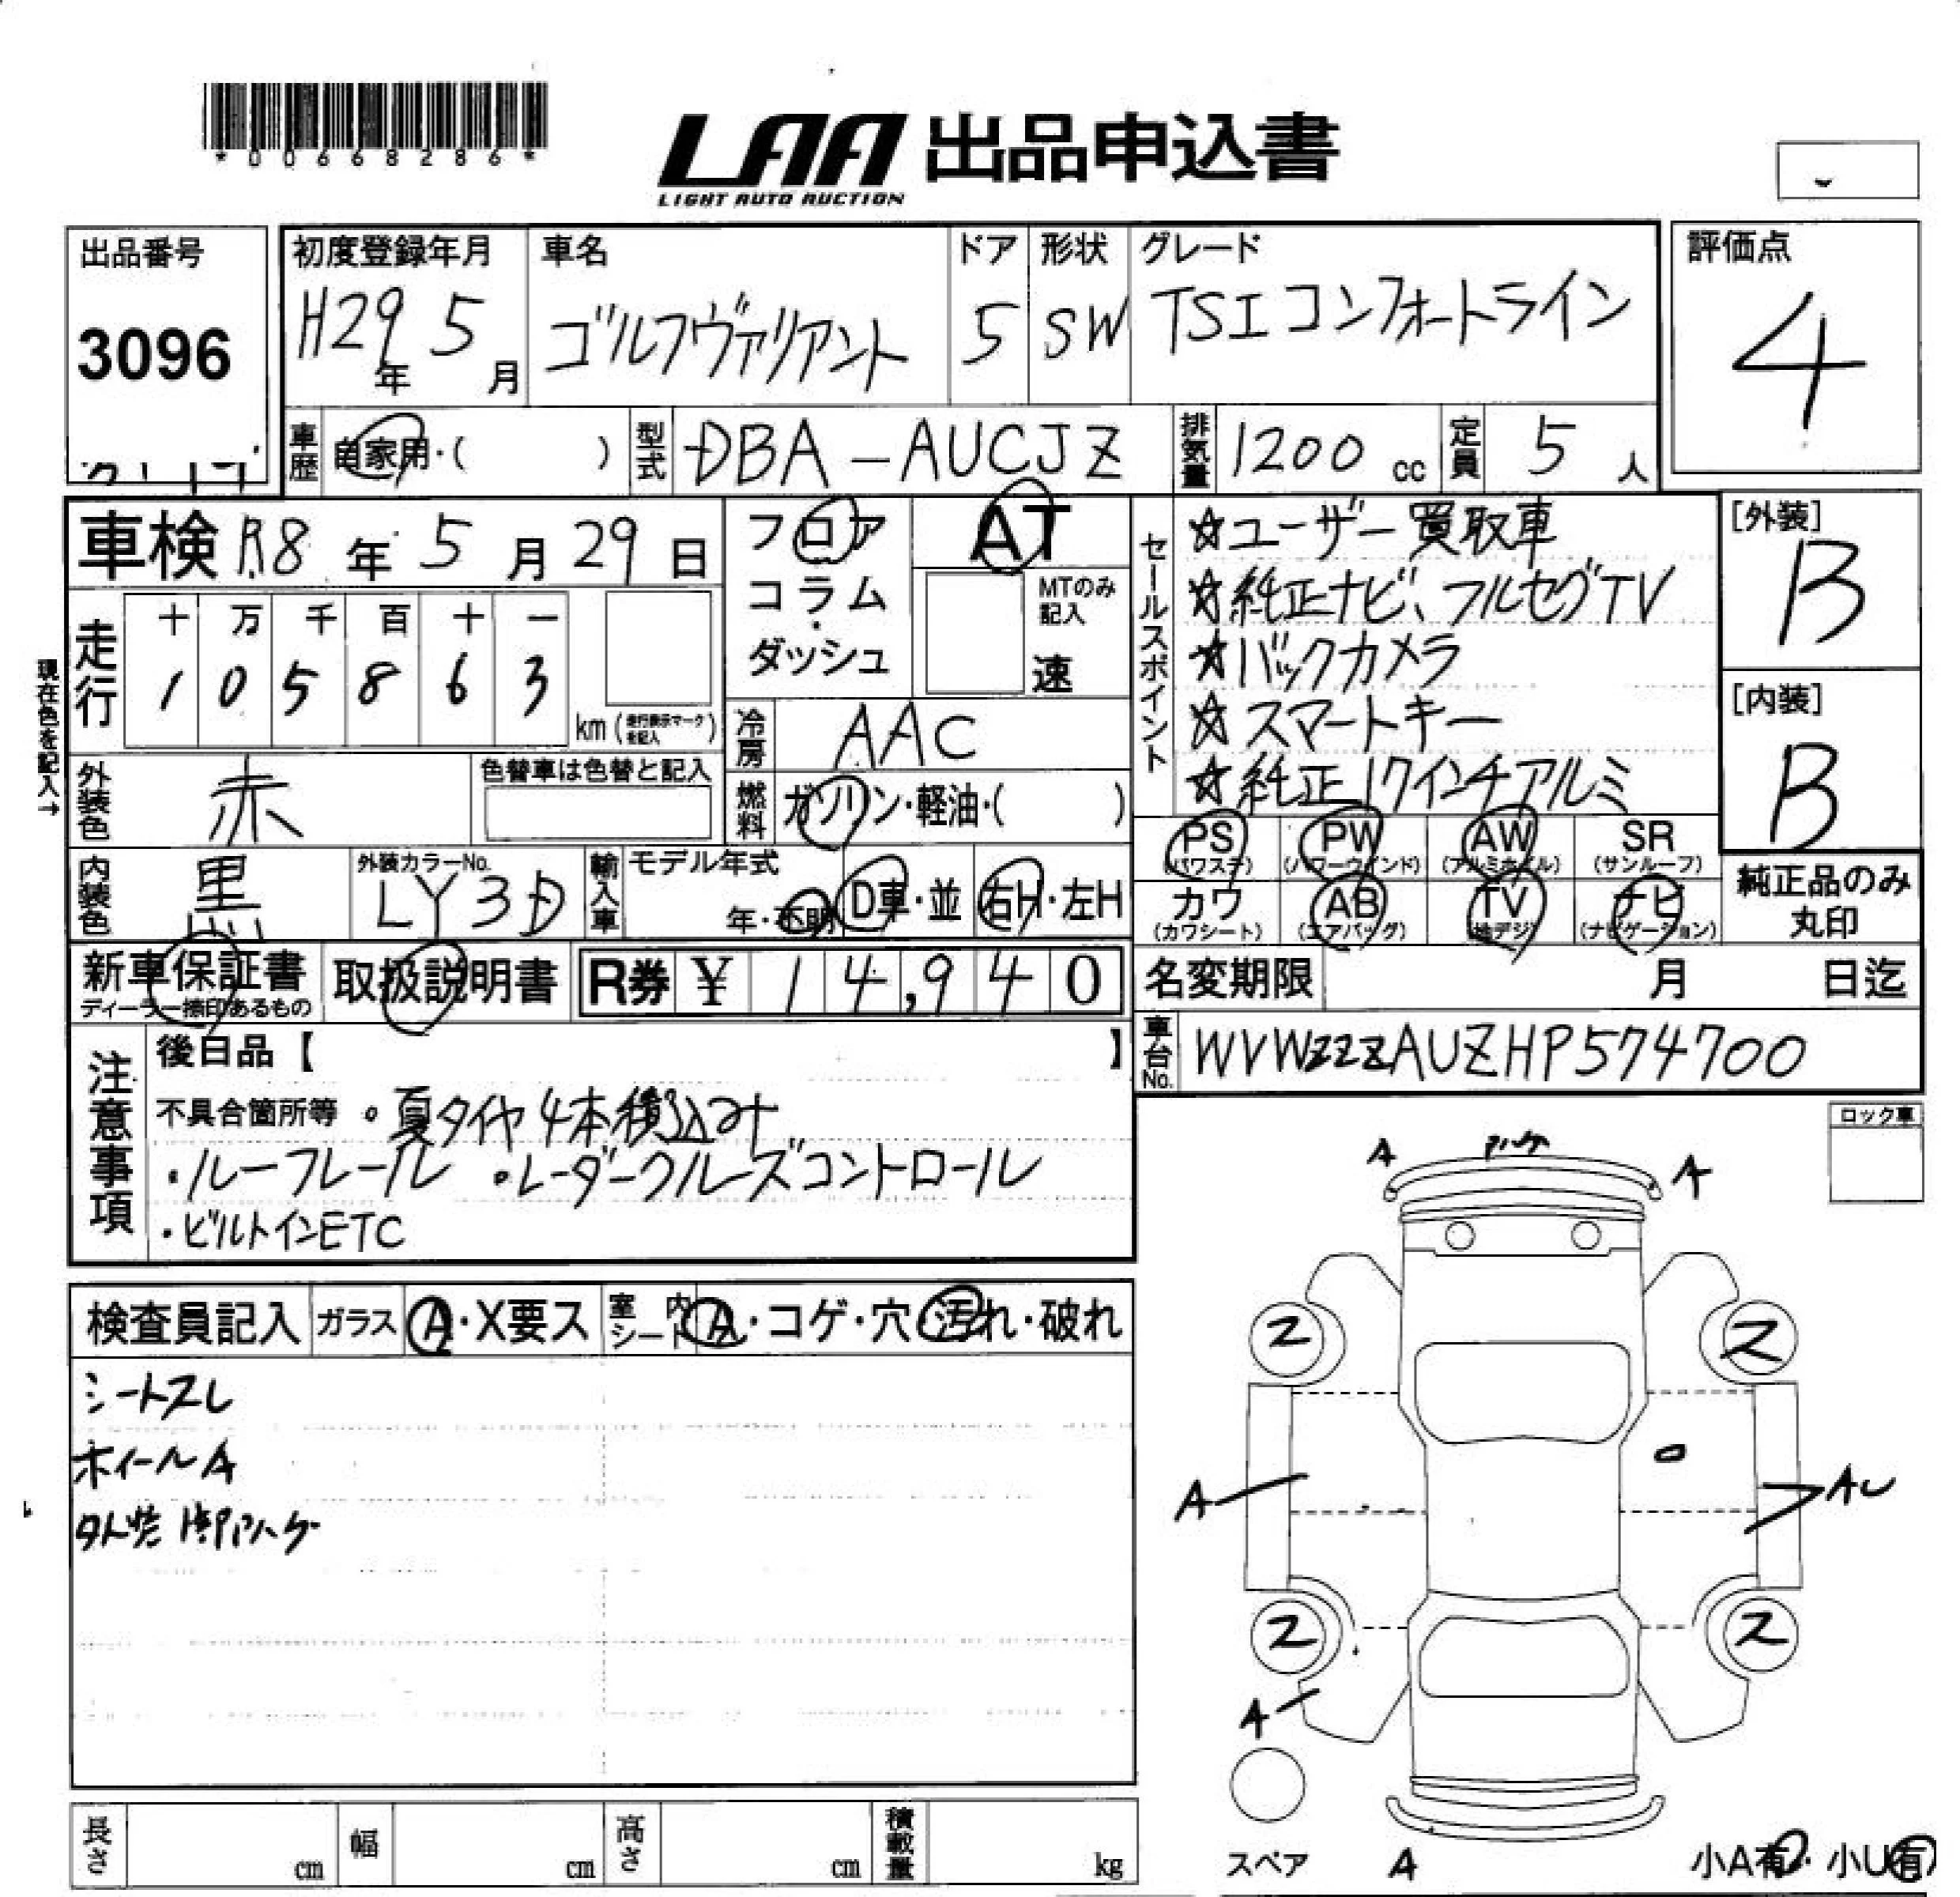 *00668286*
LAA 出品申込書
LIGHT AUTO AUCTION
出品番号
3096
初度登録年月
H29年 5月
車名
ゴルフヴァリアント
ドア
5
形状
SW
グレード
TSI コンフォートライン
評価点
4
車歴
自家用・( )
型式
DBA-AUCJZ
排気量
1200 cc
定員
5 人
車検 R8年 5月 29日
フロア
コラム
・
ダッシュ
AT
MTのみ
記入
速
セールスポイント
☆ユーザー買取車
☆純正ナビ、フルセグTV
☆バックカメラ
☆スマートキー
☆純正17インチアルミ
[外装]
B
[内装]
B
現在色を記入→
走行
十 万 千 百 十 一
1 0 5 8 6 3
km (走行表示マークを記入)
冷房
AAC
外装色
赤
色替車は色替と記入
燃料
ガソリン・軽油・( )
内装色
黒
外装カラーNo.
LY3D
輸入車
モデル年式
年・不明
D車・並
右H・左H
PS
(パワステ)
PW
(パワーウインド)
AW
(アルミホイル)
SR
(サンルーフ)
カワ
(カワシート)
AB
(エアバッグ)
TV
(地デジ)
ナビ
(ナビゲーション)
純正品のみ
丸印
新車保証書
ディーラー捺印あるもの
取扱説明書
R券 ¥ 14,940
名変期限 月 日迄
車台No.
WVWZZZAUZHP574700
注意事項
後日品【 】
不具合箇所等 ・夏タイヤ4本積込み
・ルーフレール ・レーダークルーズコントロール
・ビルトインETC
ロック車
検査員記入
ガラス
A・X要ス
室内
シート
A・コゲ・穴・汚れ・破れ
シートスレ
ホイールA
A
A
2
2
A
AU
2
2
A
スペア
A
小A有・小U有
長さ
cm
幅
cm
高さ
cm
積載量
kg